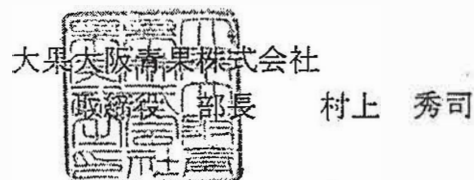 大果大阪青果株式会社
取締役 部長 村上 秀司